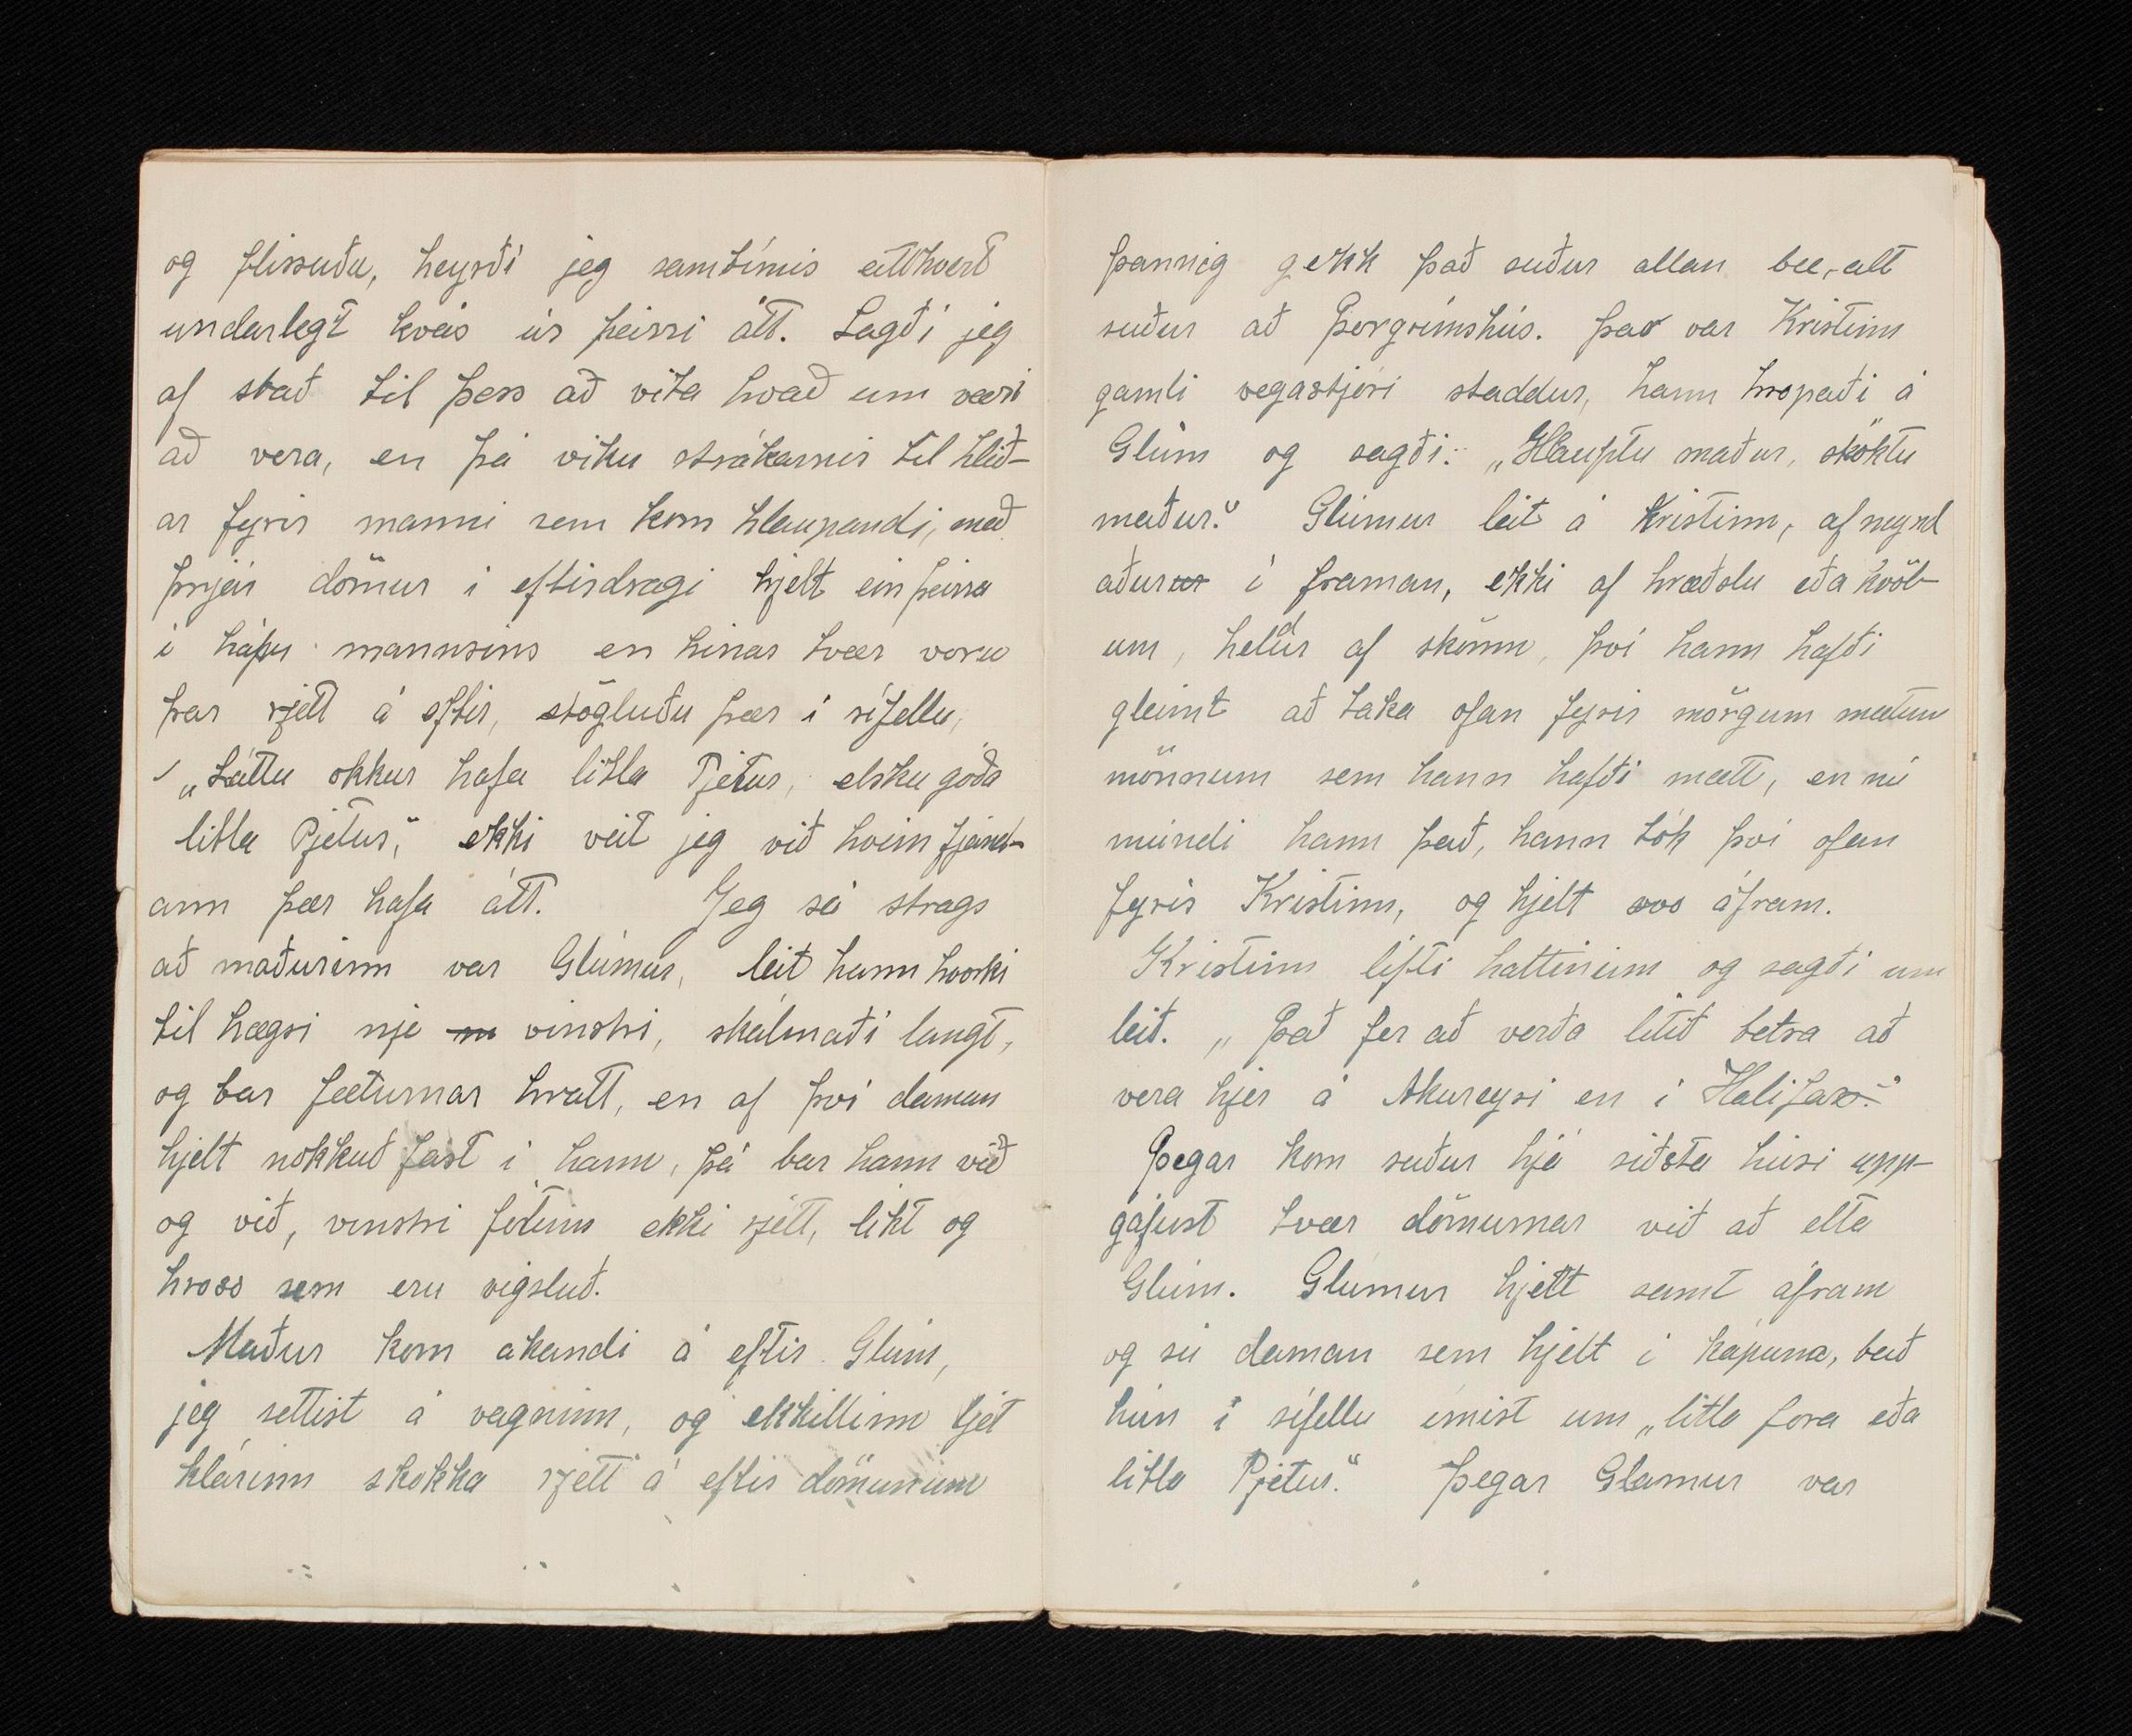 og flissuðu, heyrði jeg samtímis eitthvert
undarlegt kvás úr þeirri átt. Lagði jeg
af stað til þess að vita hvað um væri
að vera, en þá viku strákarnir til hlið-
ar fyrir manni sem kom hlaupandi, með
þrjár dömur i eftirdragi hjelt ein þeirra
i kápu mannsins en hinar tvær voru
þar rjett á eftir, stögluðu þær i sífellu,
„Láttu okkur hafa litla Pjetur, elsku góða
litla Pjetur," ekki veit jeg við hvein fjand-
ann þær hafa átt. Jeg sá strags
að maðurinn var Glúmur, leit hann hvorki
til hægri nje vinstri, skálmaði langt,
og bar fæturnar hratt, en af því daman
hjelt nokkuð fast i hann, þá bar hann við
og við, vinstri fótinn ekki rjett, líkt og
hross sem eru vigsluð.
Maður kom akandi á eftir Glúm,
jeg settist á vagninn, og ekkillinn ljet
klárinn skokka rjett á eftir dömunum
þannig gekk það suður allan bæ, alt
suður að Þorgrímshús. Þar var Kristinn
gamli vegastjóri staddur, hann hropaði á
Glúm og sagði: „Hlauptu maður, sköktu
maður." Glúmur leit á Kristinn, afmynd
aður í framan, ekki af hræðslu eða kvöl-
um, heldur af skömm, því hann hafði
gleimt að taka ofan fyrir mörgum mætum
mönnum sem hann hafði mætt, en nú
mundi hann það, hann tók því ofan
fyrir Kristinn, og hjelt svo áfram.
Kristinn lifti hattinum og sagði um
leið. „Það fer að verða litið betra að
vera hjer á Akureyri en i Halifax."
Þegar kom suður hjá siðsta húsi upp-
gáfust tvær dömurnar við að elta
Glúm. Glumur hjelt samt áfram
og sú daman sem hjelt i kápuna, bað
hún i sífellu ímist um „litla fora eða
litla Pjetur." Þegar Glamur var